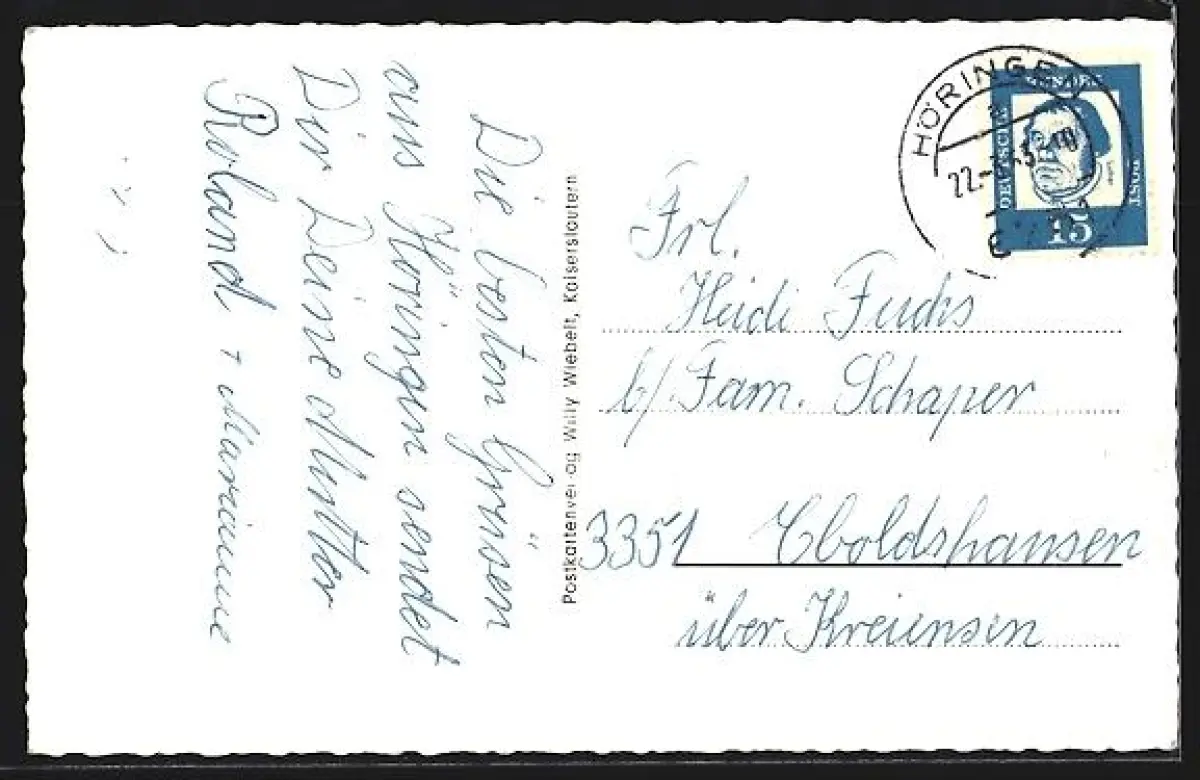 Die besten Grüsen
aus Höringen sendet
Dir Deine Mutter
Roland + Marianne
Postkartenverlag Willy Wiebelt, Kaiserslautern
HÖRINGEN
DEUTSCHE BUNDES POST
15
Frl.
Heidi Fuchs
b/. Fam. Schaper
3351 Eboldshausen
über Kreiensen